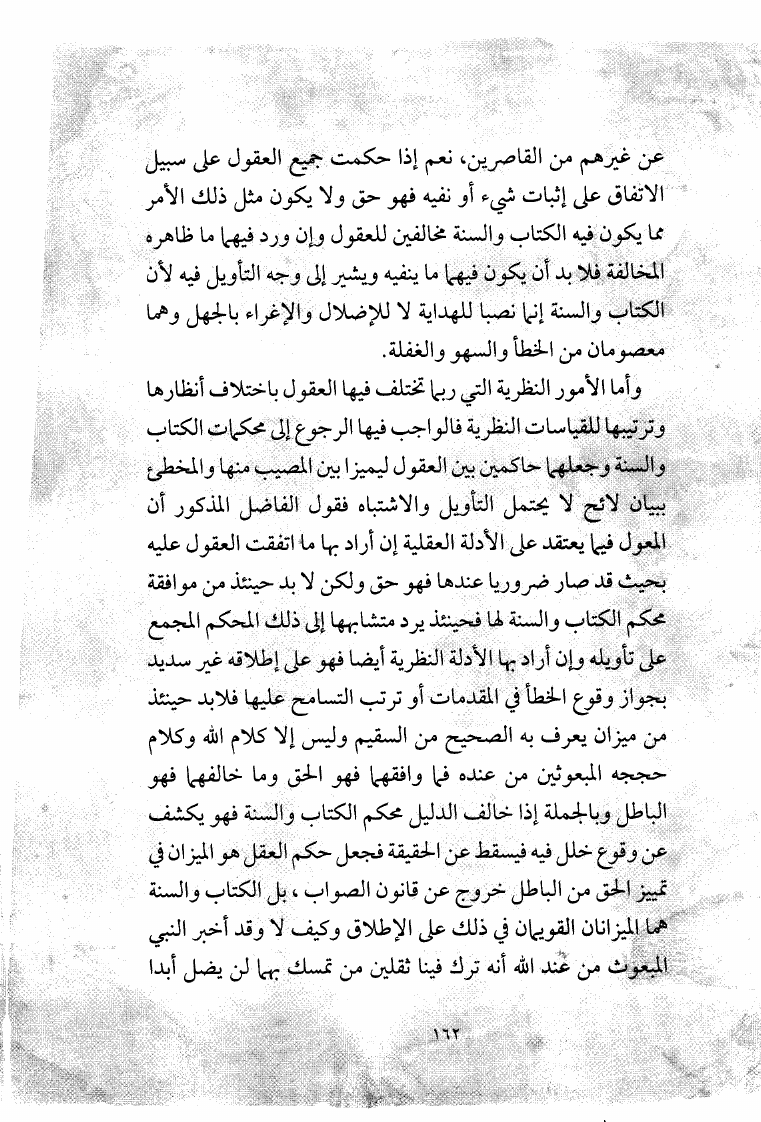 عن غيرهم من القاصرين، نعم إذا حكمت جميع العقول على سبيل
الاتفاق على إثبات شيء أو نفيه فهو حق ولا يكون مثل ذلك الأمر
مما يكون فيه الكتاب والسنة مخالفين للعقول وإن ورد فيهما ما ظاهره
المخالفة فلا بد أن يكون فيهما ما ينفيه ويشير إلى وجه التأويل فيه لأن
الكتاب والسنة إنما نصبا للهداية لا للإضلال والإغراء بالجهل وهما
معصومان من الخطأ والسهو والغفلة.
وأما الأمور النظرية التي ربما تختلف فيها العقول باختلاف أنظارها
وترتيبها للقياسات النظرية فالواجب فيها الرجوع إلى محكمات الكتاب
والسنة وجعلهما حاكمين بين العقول ليميزا بين المصيب منها والمخطئ
ببيان لائح لا يحتمل التأويل والاشتباه فقول الفاضل المذكور أن
المعول فيما يعتقد على الأدلة العقلية إن أراد بها ما اتفقت العقول عليه
بحيث قد صار ضروريا عندها فهو حق ولكن لا بد حينئذ من موافقة
محكم الكتاب والسنة لها فحينئذ يرد متشابهها إلى ذلك المحكم المجمع
على تأويله وإن أراد بها الأدلة النظرية أيضا فهو على إطلاقه غير سديد
بجواز وقوع الخطأ في المقدمات أو ترتب التسامح عليها فلابد حينئذ
من ميزان يعرف به الصحيح من السقيم وليس إلا كلام الله وكلام
حججه المبعوثين من عنده فما وافقهما فهو الحق وما خالفهما فهو
الباطل وبالجملة إذا خالف الدليل محكم الكتاب والسنة فهو يكشف
عن وقوع خلل فيه فيسقط عن الحقيقة فجعل حكم العقل هو الميزان في
تمييز الحق من الباطل خروج عن قانون الصواب ، بل الكتاب والسنة
هما الميزانان القويمان في ذلك على الإطلاق وكيف لا وقد أخبر النبي
المبعوث من عند الله أنه ترك فينا ثقلين من تمسك بهما لن يضل أبدا
١٦٢